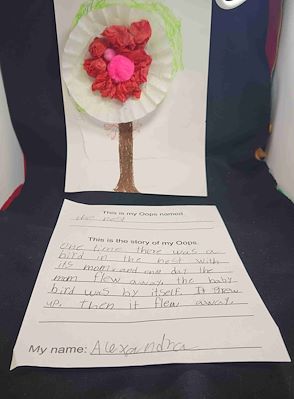 This is my Oops named
the nest
This is the story of my Oops.
One time there was a
bird in the nest with
its mom and one day the
mom flew away. the baby
bird was by itself. It grew
up. Then it flew away.
My name: Alexandra